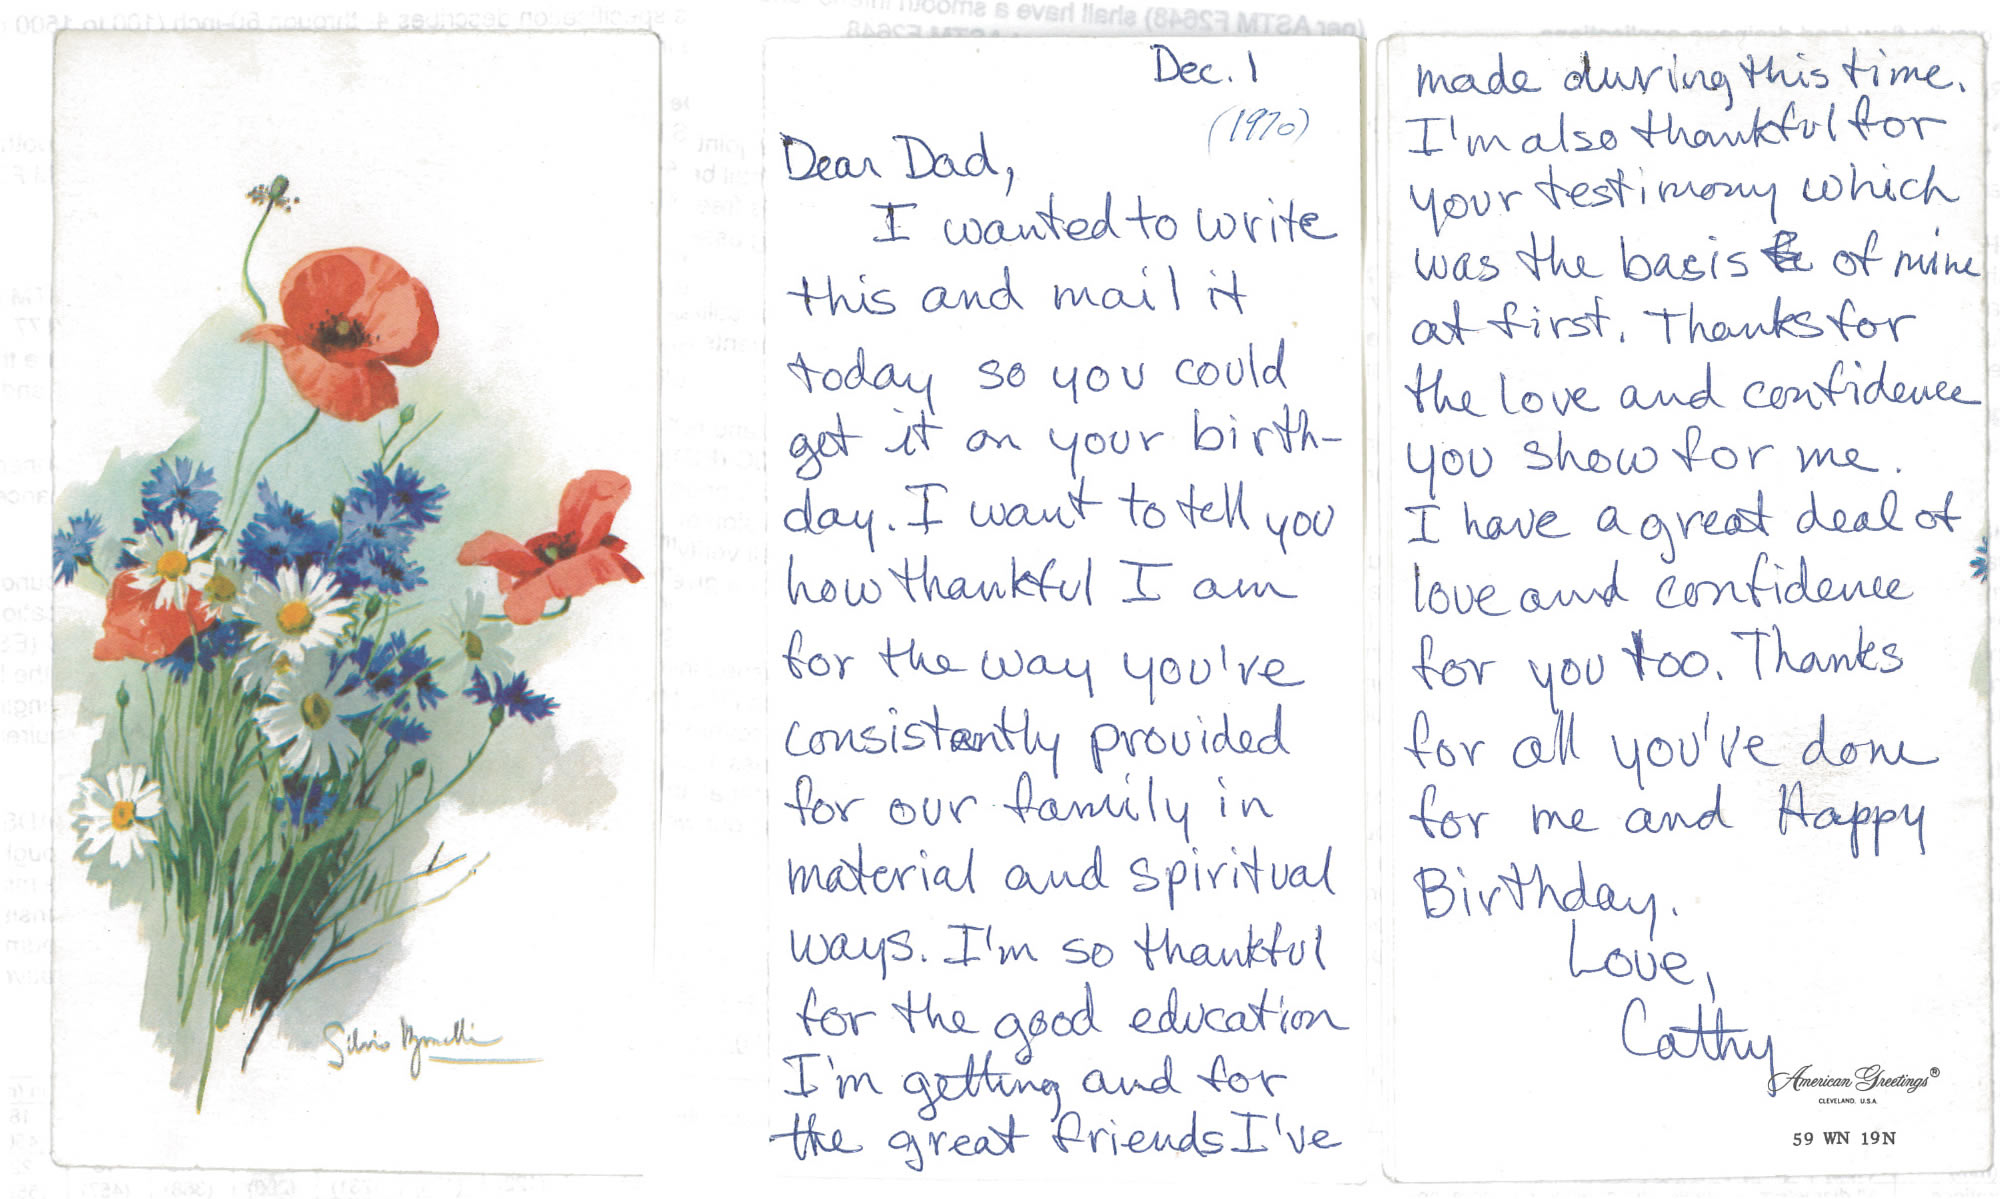 Silvio Bonelli
Dec. 1
(1970)
Dear Dad,
I wanted to write
this and mail it
today so you could
get it on your birth-
day. I want to tell you
how thankful I am
for the way you've
consistantly provided
for our family in
material and spiritual
ways. I'm so thankful
for the good education
I'm getting and for
the great friends I've
made during this time.
I'm also thankful for
your testimony which
was the basis of mine
at first. Thanks for
the love and confidence
you show for me.
I have a great deal of
love and confidence
for you too. Thanks
for all you've done
for me and Happy
Birthday.
Love,
Cathy
American Greetings®
CLEVELAND, U.S.A.
59 WN 19N